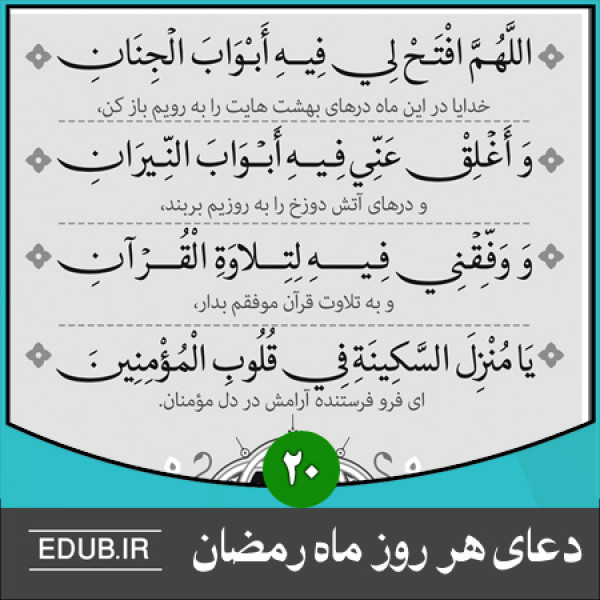 اللَّهُمَّ افْتَحْ لِي فِيهِ أَبْوَابَ الْجِنَانِ
خدایا در این ماه درهای بهشت هایت را به رویم باز کن،
وَ أَغْلِقْ عَنِّي فِيهِ أَبْوَابَ النِّيرَانِ
و درهای آتش دوزخ را به روزیم بربند،
وَ وَفِّقْنِي فِيهِ لِتِلاوَةِ الْقُرْآنِ
و به تلاوت قرآن موفقم بدار،
يَا مُنْزِلَ السَّكِينَةِ فِي قُلُوبِ الْمُؤْمِنِينَ
ای فرو فرستنده آرامش در دل مؤمنان.
۲۰
دعای هر روز ماه رمضان
EDUB.IR